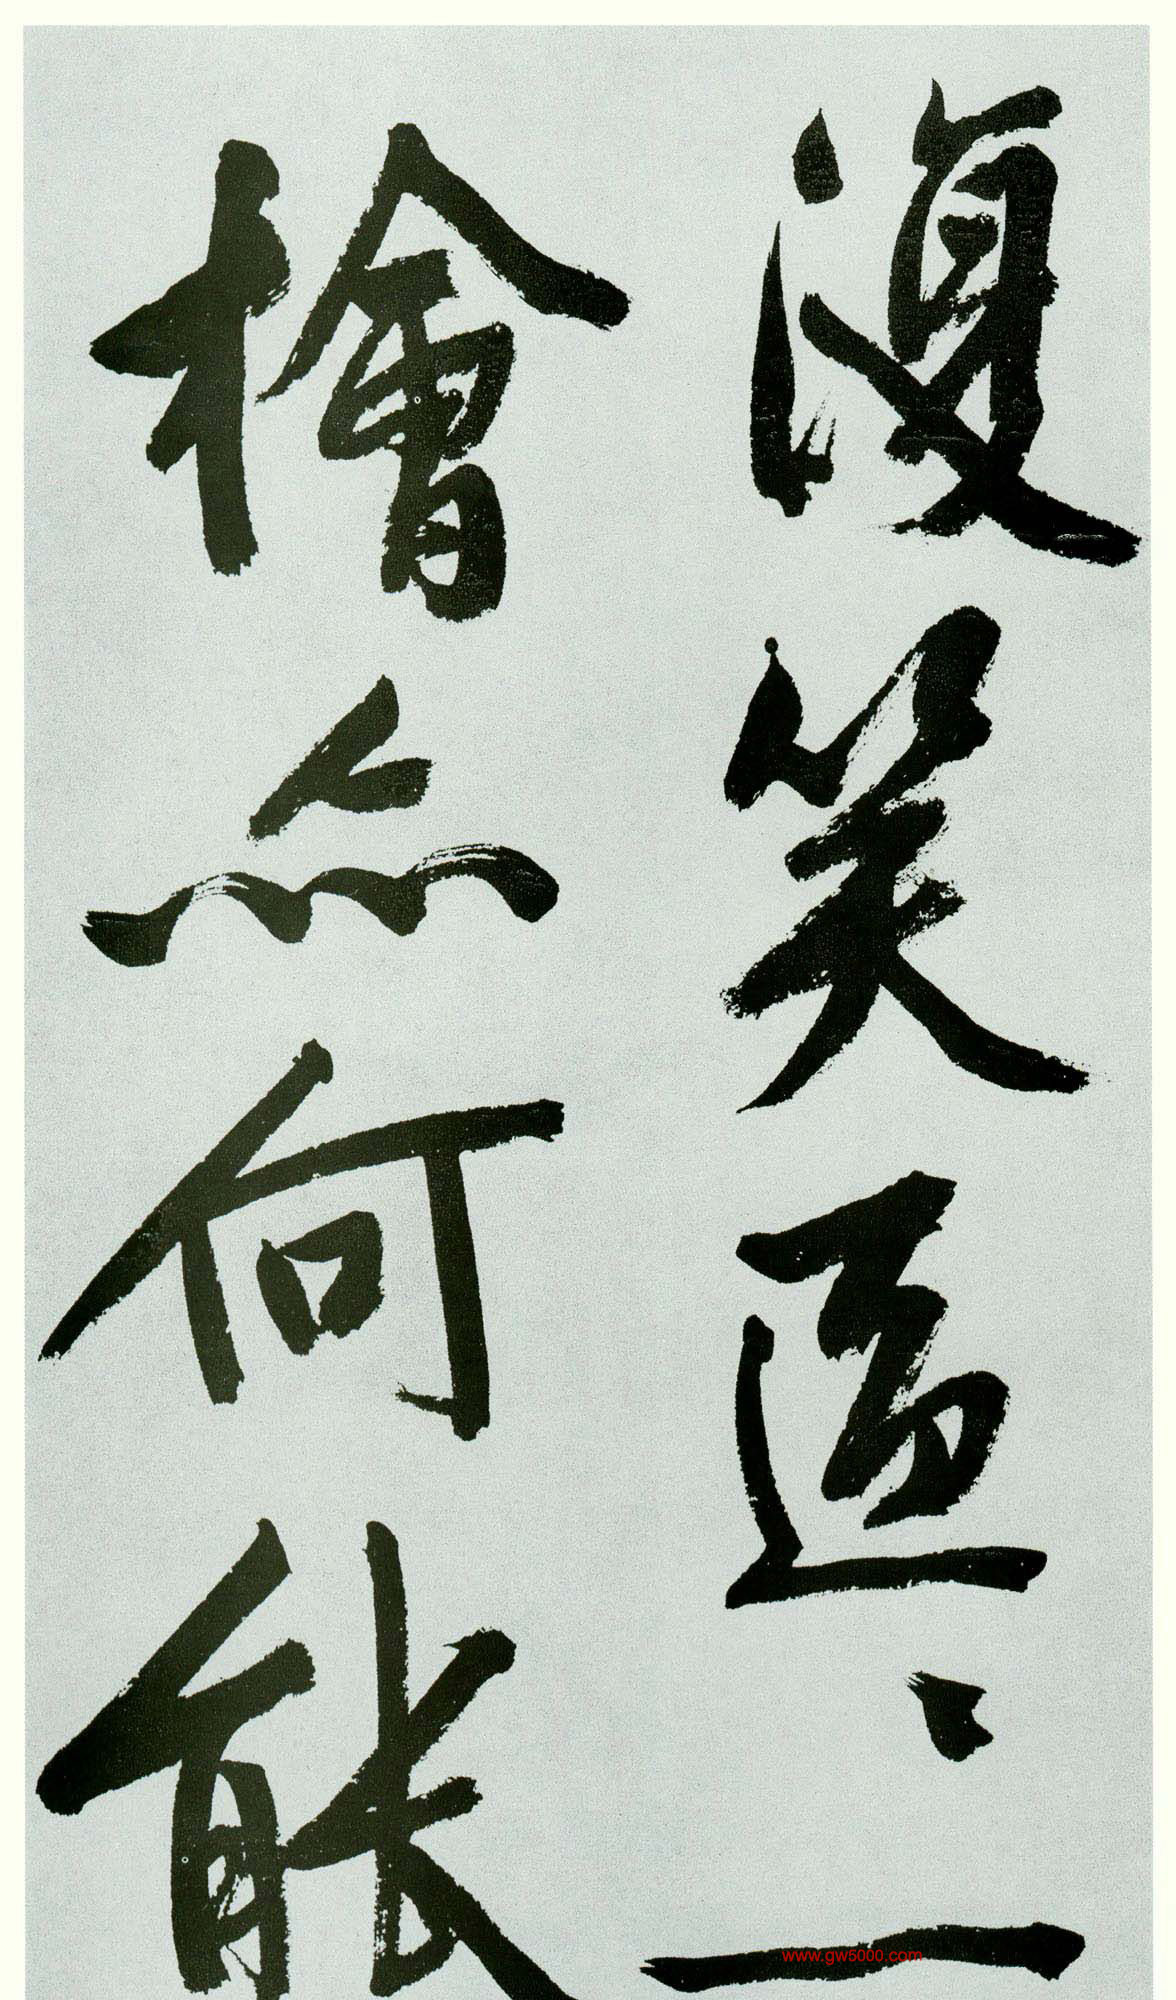 復笑區區一
檜亦何能
www.gw5000.com